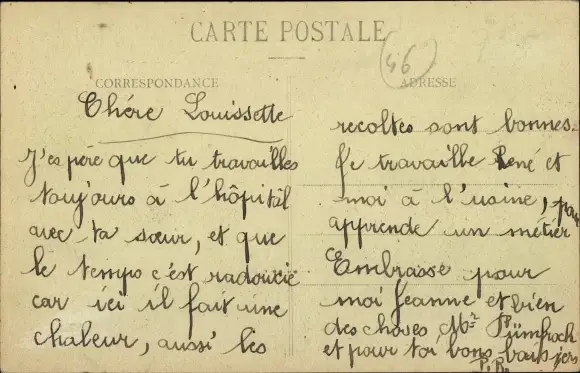 CARTE POSTALE
46
CORRESPONDANCE
ADRESSE
Chére Louissette
J'espére que tu travailles
toujours à l'hôpital
avec ta sœur, et que
le temps c'est radoucie
car ici il fait une
chaleur, aussi les
recoltes sont bonnes.
Je travaille René et
moi à l'usine, pour
apprende un métier
Embrasse pour
moi Jeanne et bien
des choses Mr
et pour toi bons
P. R.